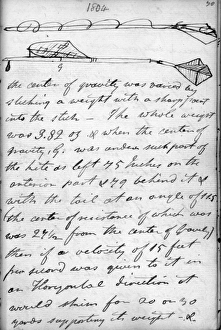 1804
the center of gravity was varied by
sticking a weight with a sharp point
into the stick — The whole weight
was 3.82 oz & when the center of
gravity, G. was under such part of
the kite as left 75 Inches on the
anterior part & 49 behind it &
with the tail at an angle of
the center of resistance of which was
was from the center of Cavity)
then if a velocity of 15 feet
per second was given to it in
an Horizontal direction it
would skim for 20 or 30
yards supporting its weight — &